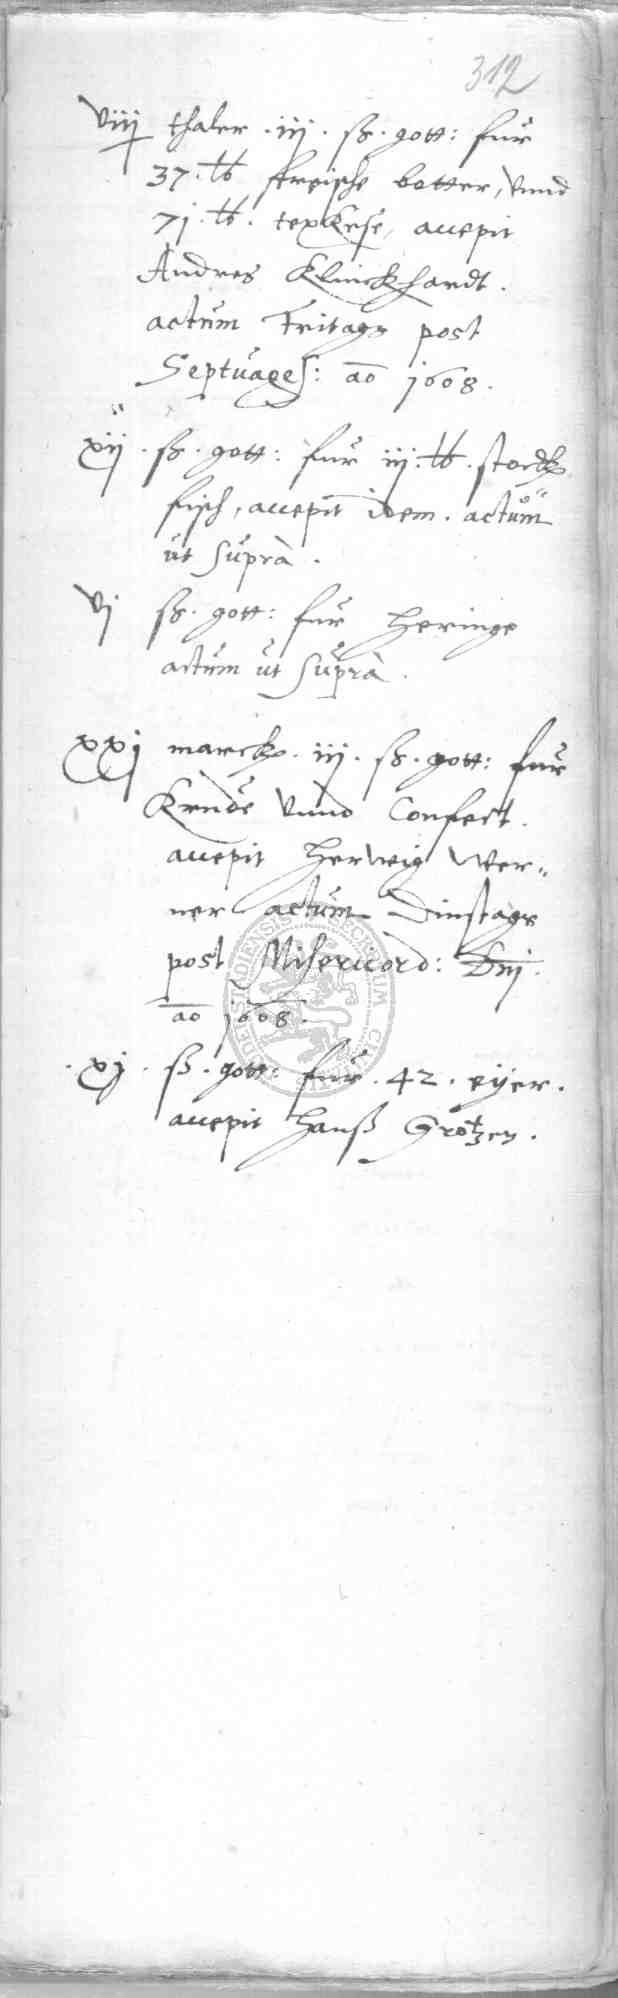 312
viij thaler . iij . ß . gott: fur
37 . lb freische botter, vnnd
71 . lb . texkese, accepit
Andres Klinckhardt .
actum Fritags post
Septuages: ao 1608 .
xij . ß . gott: fur iij . lb . stock
fisch, accepit idem . actum
ut supra .
vj ß . gott: fur heringe
actum ut supra .
xxj marck . iij . ß . gott: fur
Krude vnnd Confect .
accepit Herweig Wer-
ner actum Dinstags
post Misericord: Dnj .
ao 1608 .
. xj . ß . gott: fur . 42 . eijer .
accepit Hanß Grotzen .